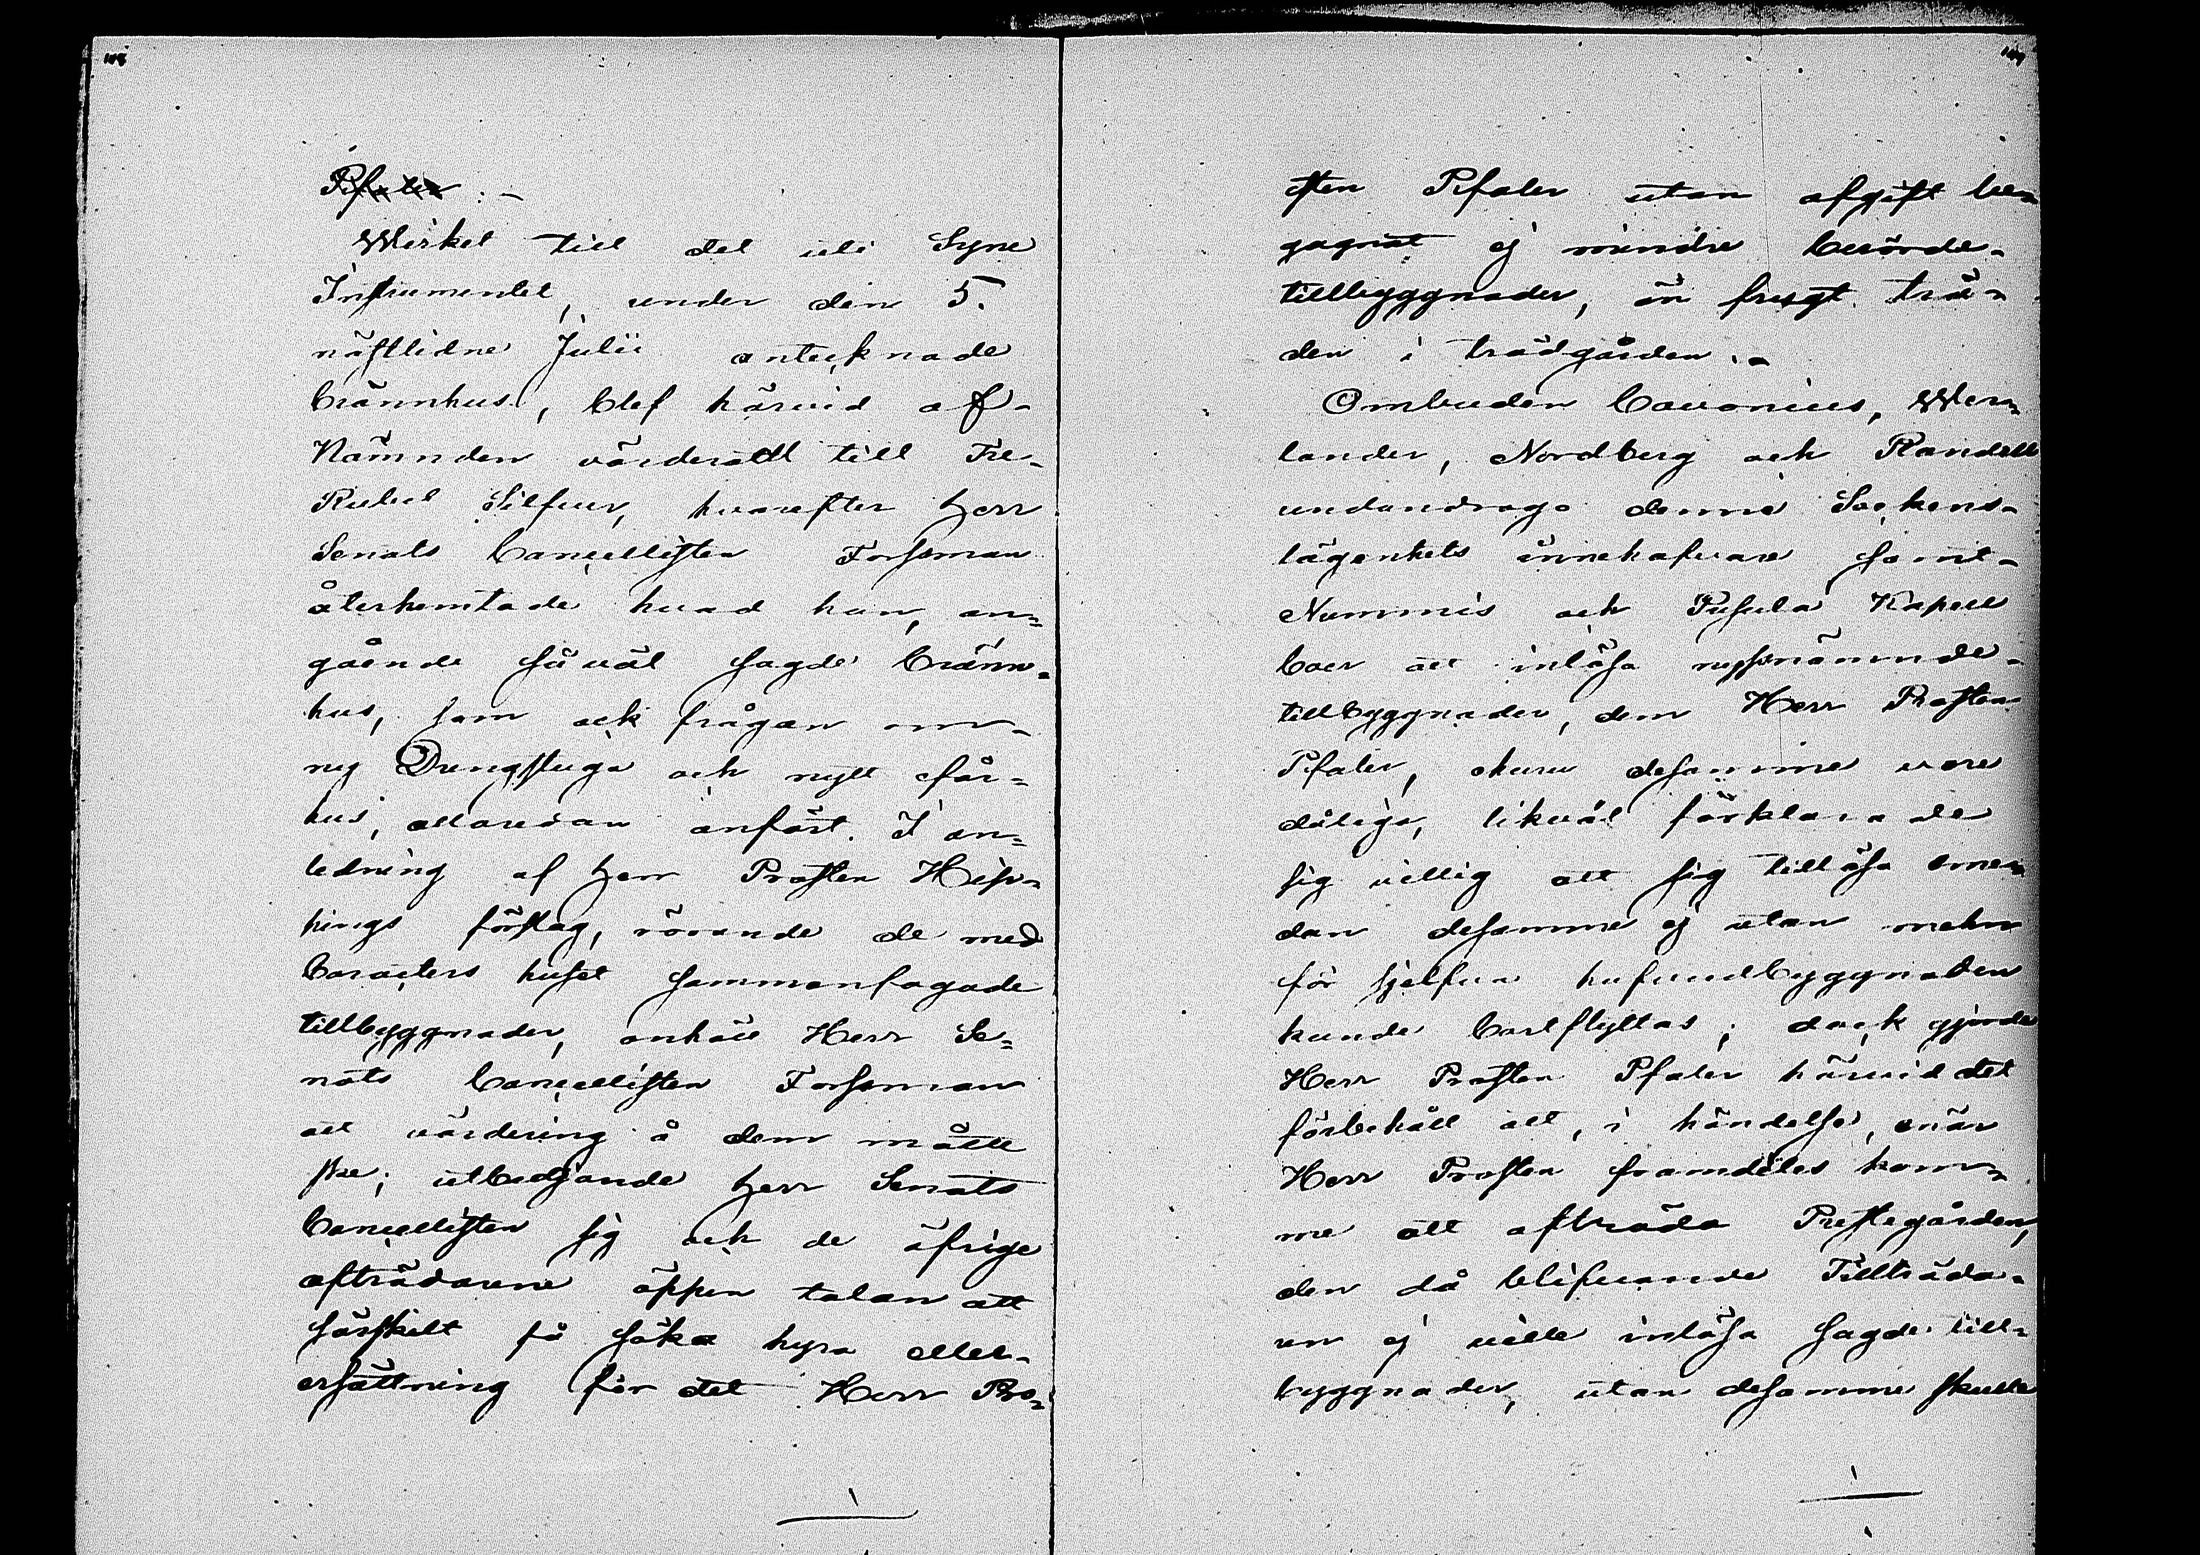 118
Pfaler: -
Werket till det uti Syne
Instrumentet, under den 5.
nästlidne Julii antecknade
brännhus, blef härvid af
Nämnden värderadt till Tre
Rubel Silfver, hvarefter Herr
Senats Cancellisten Forssman
återhemtade hvad han, an=
gående så väl sagde bränn=
hus, som ock frågan om
ny Drängstuga och nytt får=
hus, allaredan anfört. I an=
ledning af Herr Prosten Hip-
pings förslag, rörande de med
Caracters huset sammanfogade
tillbyggnader, anhöll Herr Se=
nats Cancellisten Forssman
att värdering å dem måtte
ske; utbedjande Herr Senats
Cancellisten sig och de öfrige
afträdarene öppen talan att
särskilt få söka hyra eller
ersättning för det Herr Pro=
119
sten Pfaler utan afgift be=
gagnat ej mindre berörde
tillbyggnader, än frugt trä=
den i trädgården. -
Ombuden Cavonius, Wer=
lander, Nordberg och Randell
undandrogo denne Sockens
lägenhets innehafvare samt
Nummis och Pusula Kapell
boer att inlösa nyssnämnde
tillbyggnader, dem Herr Prosten
Pfaler, ehuru desamme vore
dålige, likväl förklarade
sig villig att sig tillösa eme=
dan desamme ej utan mehn
för sjelfva hufvudbyggnaden
kunde bortflyttas; dock gjorde
Herr Prosten Pfaler härvid det
förbehåll att, i händelse, när
Herr Prosten framdeles kom=
me att afträda Prestegården,
den då blifvande Tillträda=
ren ej ville inlösa sagde till=
byggnader, utan desamme skulle